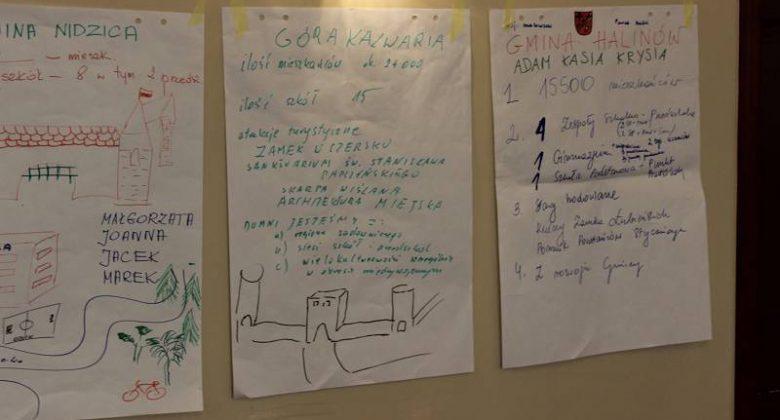 MINA NIDZICA
— mieszk
szkół - 8 w tym 2 przedsz
MAŁGORZATA
JOANNA
JACEK
MAREK
GÓRA KALWARIA
ilość mieszkańców ok 24 000
ilość szkół 15
atrakcje turystyczne
ZAMEK W CZERSKU
SANKTUARIUM ŚW. STANISŁAWA
PAPCZYŃSKIEGO
SKARPA WIŚLANA
ARCHITEKTURA MIEJSKA
DUMNI JESTEŚMY Z:
a) regionu sadowniczego
b) sieci szkół - przedszkoli
c) wielokulturowości szczególnie
w okresie międzywojennym
GMINA HALINÓW
ADAM KASIA KRYSIA
1. 15500 mieszkańców
2. 4 Zespoły Szkolno - Przedszkolne
1 Gimnazjum
1 Szkoła Podstawowa - Punkt
3. Stawy hodowlane
Ruiny Zamku
Pomnik Powstańców Styczniowych
4. Z rozwoju Gminy